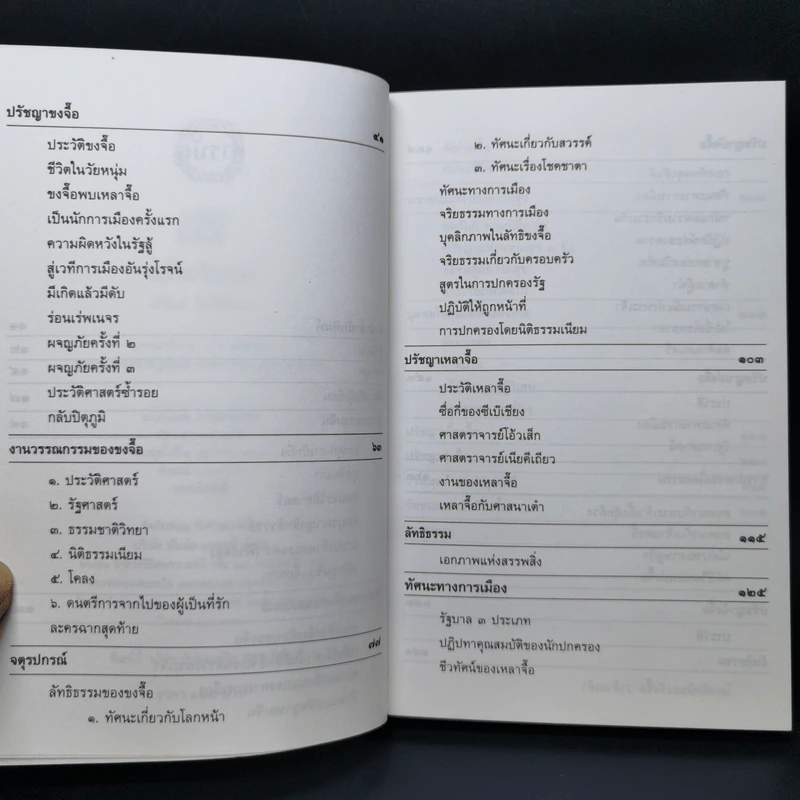 ปรัชญาขงจื๊อ
๔๑
ประวัติขงจื๊อ
ชีวิตในวัยหนุ่ม
ขงจื๊อพบเหลาจื๊อ
เป็นนักการเมืองครั้งแรก
ความผิดหวังในรัฐลู้
สู่เวทีการเมืองอันรุ่งโรจน์
มีเกิดแล้วมีดับ
ร่อนเร่พเนจร
ผจญภัยครั้งที่ ๒
ผจญภัยครั้งที่ ๓
ประวัติศาสตร์ซ้ำรอย
กลับปิตุภูมิ
งานวรรณกรรมของขงจื๊อ ๖๓
๑. ประวัติศาสตร์
๒. รัฐศาสตร์
๓. ธรรมชาติวิทยา
๔. นิติธรรมเนียม
๕. โคลง
๖. ดนตรีการจากไปของผู้เป็นที่รัก
ละครฉากสุดท้าย
๗๗
จตุรปกรณ์
ลัทธิธรรมของขงจื๊อ
๑. ทัศนะเกี่ยวกับโลกหน้า
๒. ทัศนะเกี่ยวกับสวรรค์
๓. ทัศนะเรื่องโชคชาตา
ทัศนะทางการเมือง
จริยธรรมทางการเมือง
บุคลิกภาพในลัทธิขงจื๊อ
จริยธรรมเกี่ยวกับครอบครัว
สูตรในการปกครองรัฐ
ปฏิบัติให้ถูกหน้าที่
การปกครองโดยนิติธรรมเนียม
ปรัชญาเหลาจื๊อ ๑๐๓
ประวัติเหลาจื๊อ
ซื่อกี่ของซีเบ๊เชียง
ศาสตราจารย์โอ้วเส็ก
ศาสตราจารย์เนียคีเถียว
งานของเหลาจื๊อ
เหลาจื๊อกับศาสนาเต๋า
ลัทธิธรรม ๑๑๕
เอกภาพแห่งสรรพสิ่ง
ทัศนะทางการเมือง ๑๒๕
รัฐบาล ๓ ประเภท
ปฏิปทาคุณสมบัติของนักปกครอง
ชีวทัศน์ของเหลาจื๊อ